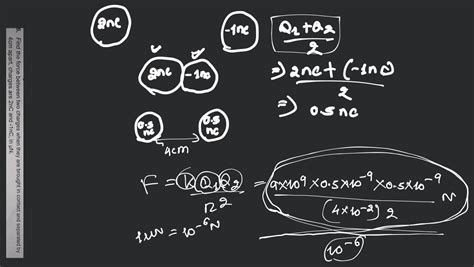 6. Find the force between two charges when they are brought in contact and separated by
4cm apart, charges are 2nC and -1nC, in μN.
2nc
-1nc
Q1 + Q2
2
2nc -1nc
=> 2nc + (-1nc)
2
=> 0.5nc
0.5
nc
0.5
nc
4cm
F = K Q1 Q2 = 9x10^9 x 0.5x10^-9 x 0.5x10^-9 N
r^2
(4x10^-2)2
1μN = 10^-6N
10^-6